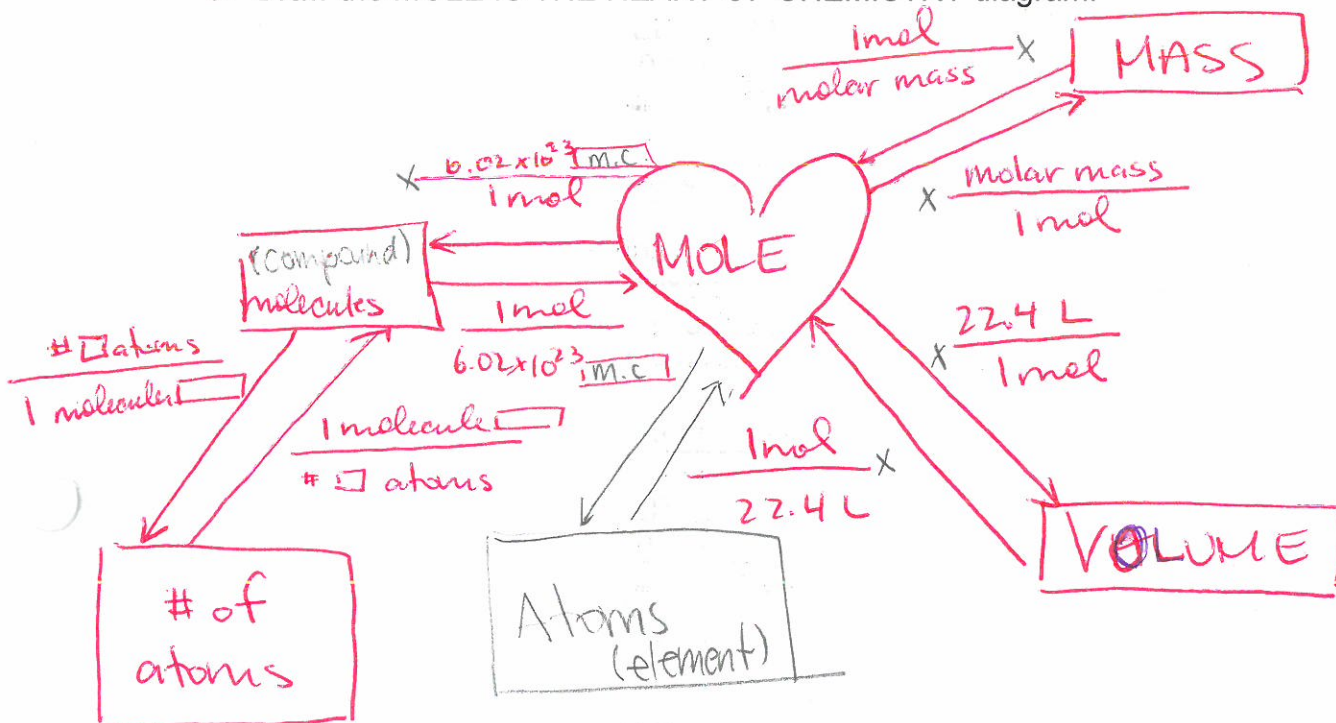 THE HEART OF CHEMISTRY diagram.
1mol
molar mass
x
MASS
x
6.02x10²³ m.c.
1mol
x
molar mass
1mol
MOLE
(compound)
molecules
1mol
6.02x10²³ m.c
x
22.4 L
1mol
# atoms
1 molecule
1 molecule
# atoms
1mol
22.4 L
x
VOLUME
# of
atoms
Atoms
(element)